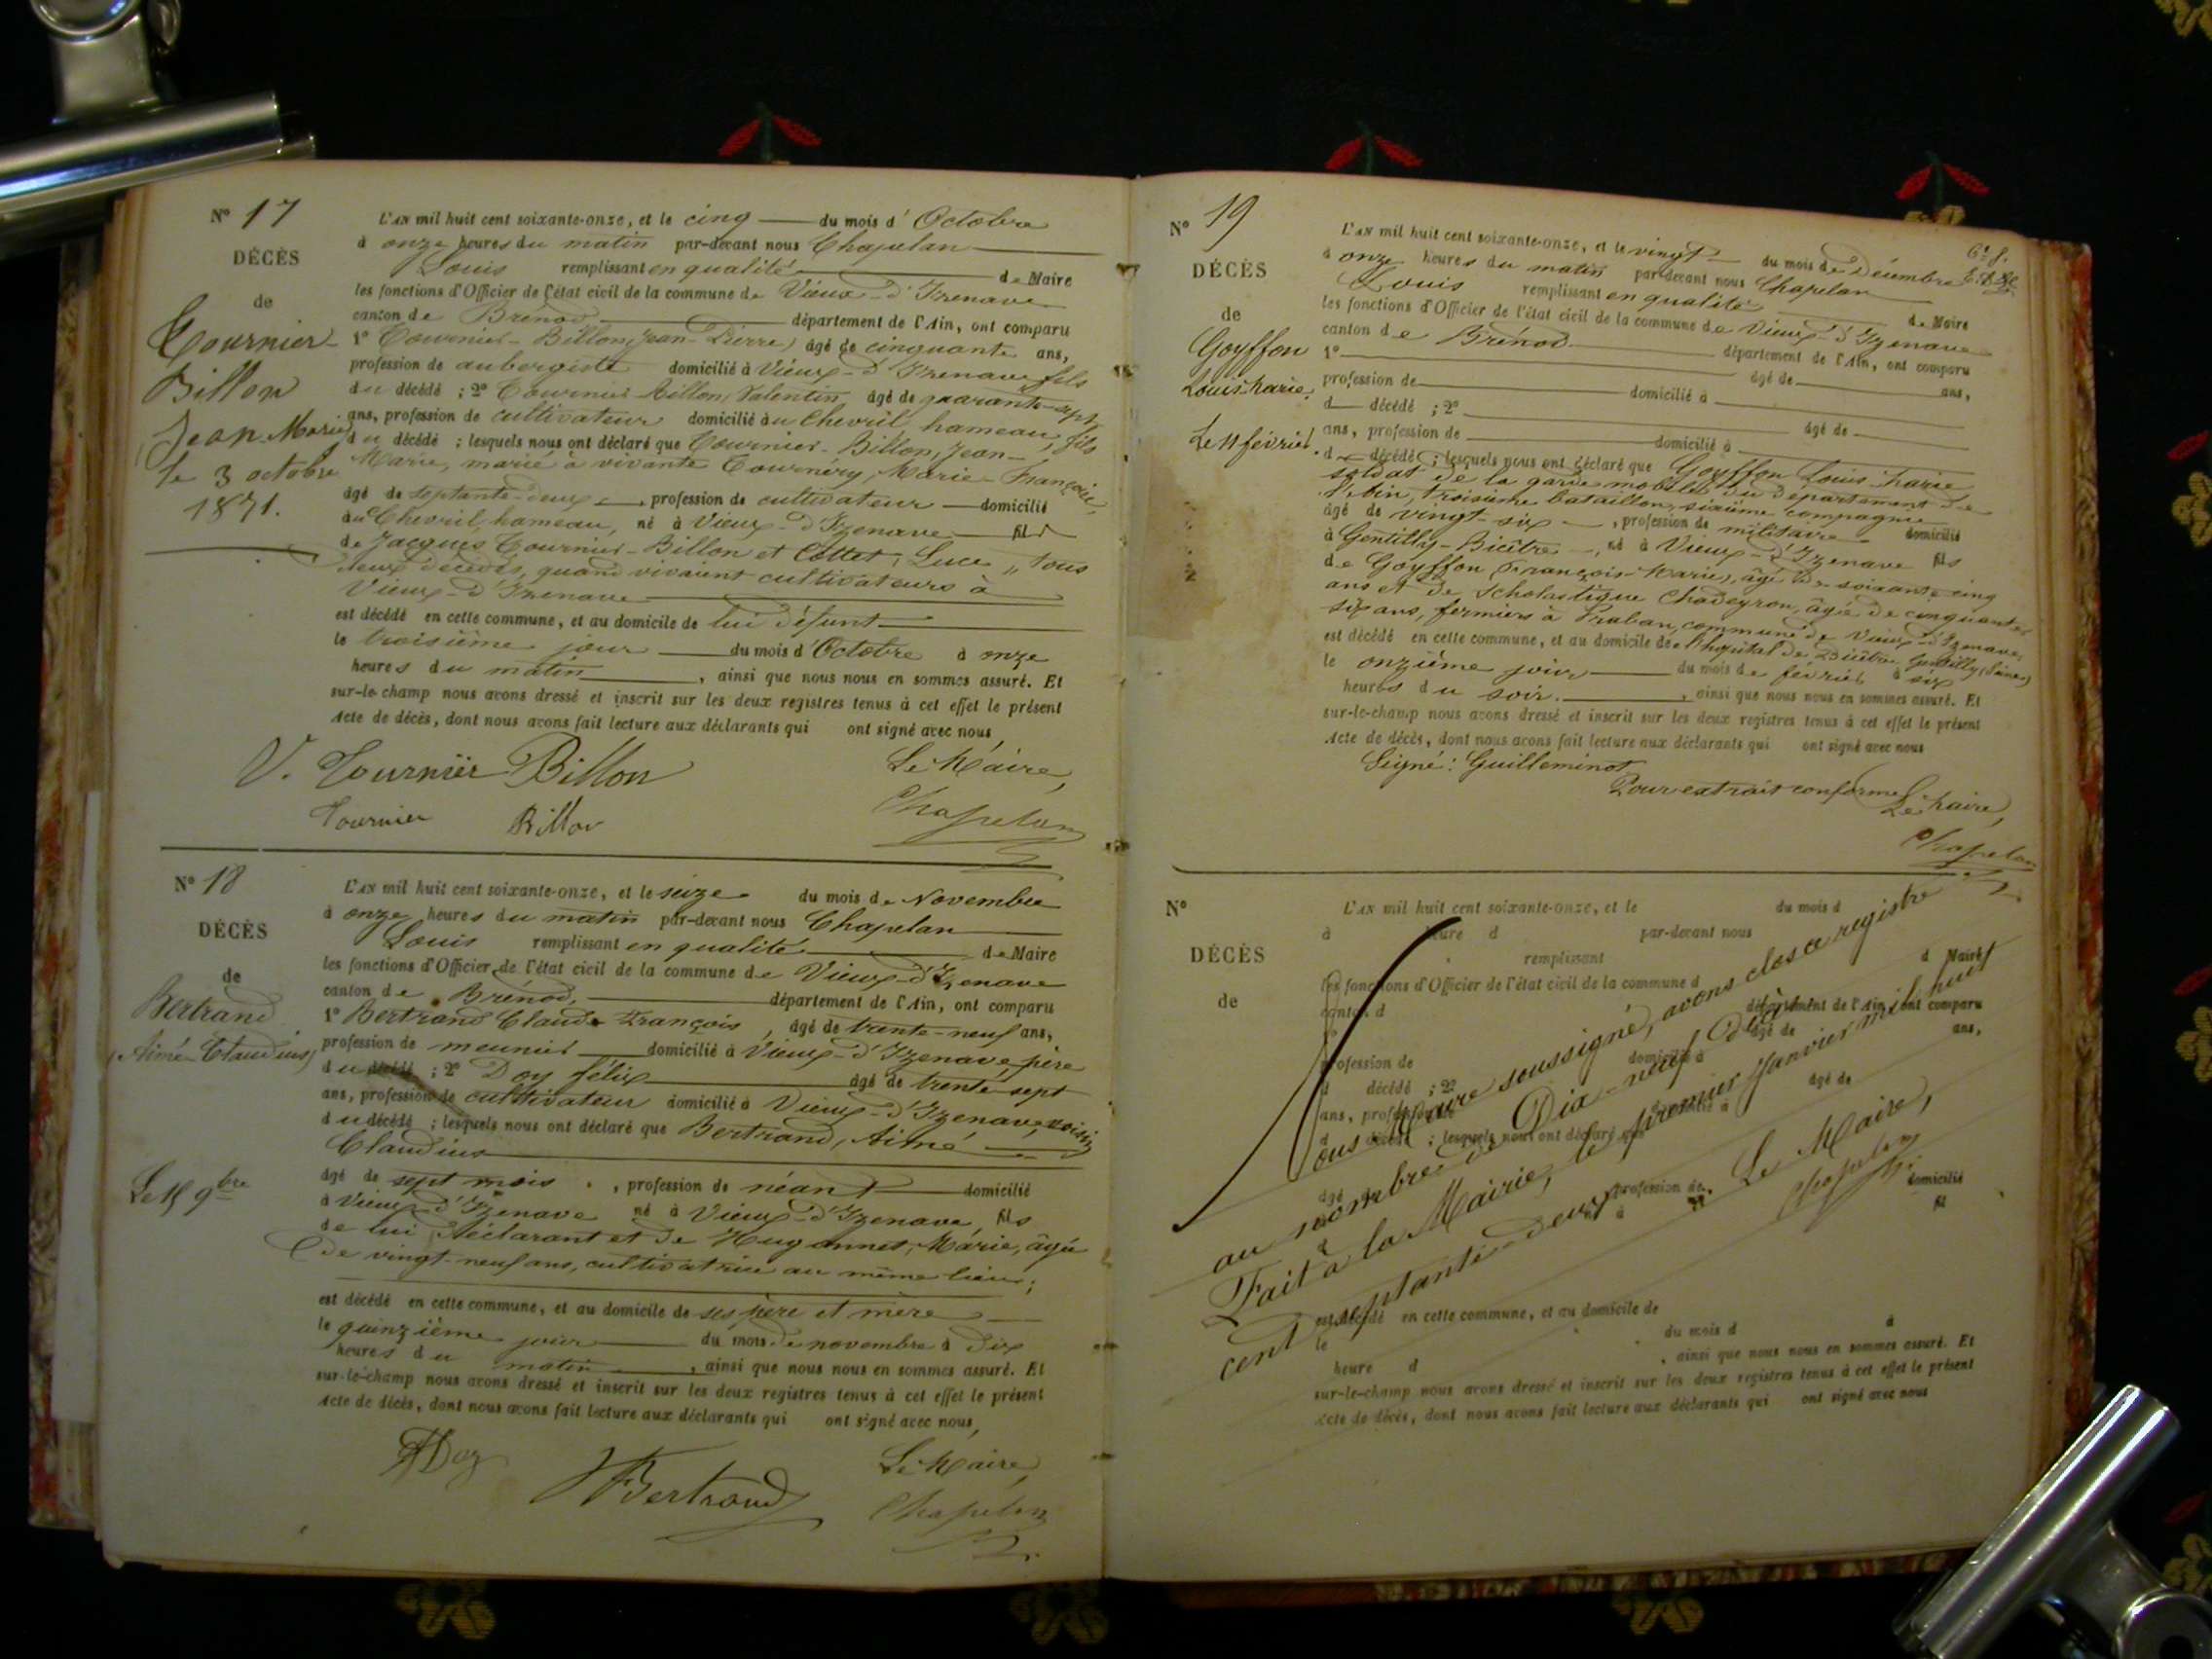 N° 17
DÉCÈS
de
Tournier-
Billon
Jean-Marie
le 3 octobre
1871.
L'AN mil huit cent soixante-onze, et le cinq du mois d'Octobre
à onze heures du matin par-devant nous Chapelan
Louis remplissant en qualité de Maire
les fonctions d'Officier de l'état civil de la commune de Vieux-d'Izenave
canton de Brénod département de l'Ain, ont comparu
1° Tournier-Billon (Jean-Pierre) âgé de cinquante ans,
profession de aubergiste domicilié à Vieux-d'Izenave fils
du décédé ; 2° Tournier Billon, Valentin âgé de quarante-sept
ans, profession de cultivateur domicilié au Chevril, hameau, fils
du décédé ; lesquels nous ont déclaré que Tournier-Billon, Jean-
Marie, marié à vivante Tournery, Marie-Françoise,
âgé de septante-deux, profession de cultivateur domicilié
au Chevril, hameau, né à Vieux-d'Izenave fils
de Jacques Tournier-Billon et Cottet, Luce, tous
deux décédés, quand vivaient cultivateurs à
Vieux-d'Izenave
est décédé en cette commune, et au domicile de lui défunt
le troisième jour du mois d'Octobre à onze
heures du matin, ainsi que nous nous en sommes assuré. Et
sur-le-champ nous avons dressé et inscrit sur les deux registres tenus à cet effet le présent
Acte de décès, dont nous avons fait lecture aux déclarants qui ont signé avec nous,
V. Tournier Billon
Le Maire,
Tournier Billon
Chapelan
N° 18
DÉCÈS
de
Bertrand
(Aimé-Claudius)
Le 15 9bre
L'AN mil huit cent soixante-onze, et le seize du mois de Novembre
à onze heures du matin par-devant nous Chapelan
Louis remplissant en qualité de Maire
les fonctions d'Officier de l'état civil de la commune de Vieux-d'Izenave
canton de Brénod, département de l'Ain, ont comparu
1° Bertrand Claude François, âgé de trente-neuf ans,
profession de meunier domicilié à Vieux-d'Izenave, père
du décédé ; 2° Doy félix âgé de trente-sept
ans, profession de cultivateur domicilié à Vieux-d'Izenave, voisin
du décédé ; lesquels nous ont déclaré que Bertrand, Aimé
Claudius
âgé de sept mois, profession de néant domicilié
à Vieux-d'Izenave né à Vieux-d'Izenave, fils
de lui déclarant et de Hugonnet, Marie, âgée
de vingt-neuf ans, cultivatrice au même lieu;
est décédé en cette commune, et au domicile de ses père et mère
le quinzième jour du mois de novembre à dix
heures du matin, ainsi que nous nous en sommes assuré. Et
sur-le-champ nous avons dressé et inscrit sur les deux registres tenus à cet effet le présent
Acte de décès, dont nous avons fait lecture aux déclarants qui ont signé avec nous,
FDoy
Bertrand
Le Maire,
Chapelan
N° 19
DÉCÈS
de
Goyffon
Louis-Marie.
Le 11 février.
L'AN mil huit cent soixante-onze, et le vingt du mois de Décembre
à onze heures du matin par-devant nous Chapelan
Louis remplissant en qualité de Maire
les fonctions d'Officier de l'état civil de la commune de Vieux-d'Izenave
canton de Brénod département de l'Ain, ont comparu
1° âgé de ans,
profession de domicilié à
d décédé ; 2° âgé de
ans, profession de domicilié à
d décédé ; lesquels nous ont déclaré que Goyffon Louis-Marie
soldat de la garde mobile du département de
l'Ain, troisième bataillon, sixième compagnie
âgé de vingt-six, profession de militaire domicilié
à Gentilly-Bicêtre, né à Vieux-d'Izenave fils
de Goyffon (François-Marie), âgé de soixante cinq
ans et de Scholastique Chadeyron, âgée de cinquante
six ans, fermiers à Praban, commune de Vieux-d'Izenave,
est décédé en cette commune, et au domicile de l'hôpital de Bicêtre Gentilly (Seine)
le onzième jour du mois de février à six
heures du soir., ainsi que nous nous en sommes assuré. Et
sur-le-champ nous avons dressé et inscrit sur les deux registres tenus à cet effet le présent
Acte de décès, dont nous avons fait lecture aux déclarants qui ont signé avec nous
Signé : Guilleminot
Pour extrait conforme
Le Maire,
Chapelan
N°
DÉCÈS
de
L'AN mil huit cent soixante-onze, et le du mois d
à heure d par-devant nous
remplissant d Maire
les fonctions d'Officier de l'état civil de la commune d
canton d département de l'Ain, ont comparu
1° âgé de ans,
profession de domicilié à
d décédé ; 2° âgé de
ans, profession de domicilié à
d décédé ; lesquels nous ont déclaré que
âgé de profession de domicilié
à né à fil
de
est décédé en cette commune, et au domicile de
le du mois d à
heure d , ainsi que nous nous en sommes assuré. Et
sur-le-champ nous avons dressé et inscrit sur les deux registres tenus à cet effet le présent
Acte de décès, dont nous avons fait lecture aux déclarants qui ont signé avec nous
Nous Maire soussigné, avons clos ce registre
au nombre de Dix-neuf Décès
Fait à la Mairie, le premier Janvier mil huit
cent septante-deux.
Le Maire,
Chapelan